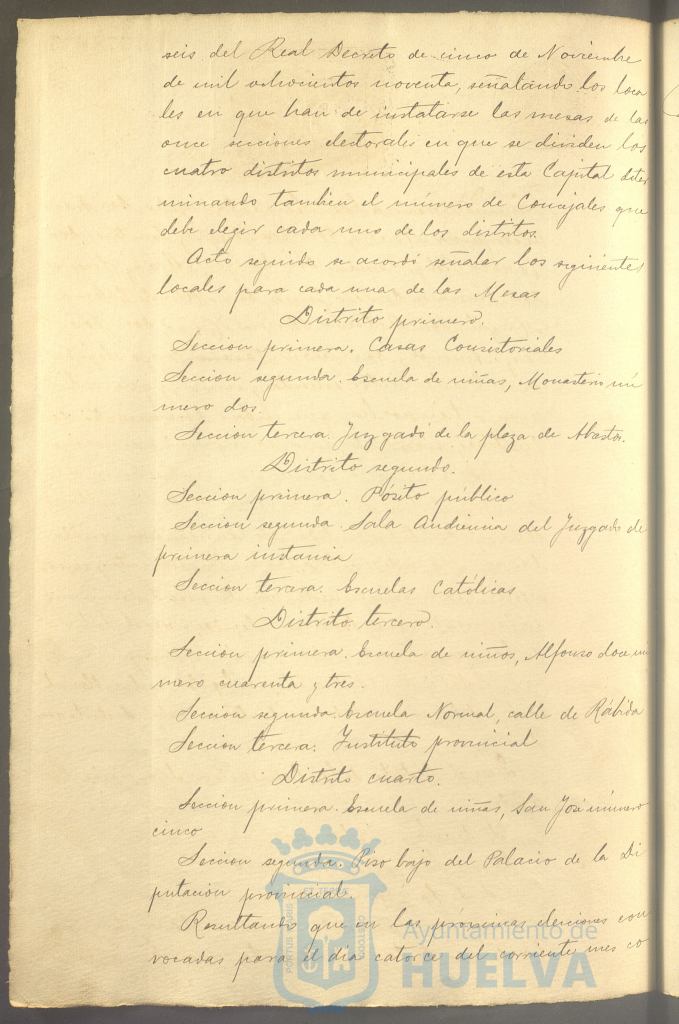 seis del Real Decreto de cinco de Noviembre
de mil ochocientos noventa, señalando los loca
les en que han de instalarse las mesas de las
once secciones electorales en que se dividen los
cuatro distritos municipales de esta Capital deter
minando tambien el número de Concejales que
debe elegir cada uno de los distritos.
Acto seguido se acordó señalar los siguientes
locales para cada una de las Mesas
Distrito primero.
Seccion primera. Casas Consistoriales
Seccion segunda. Escuela de niñas, Monasterio nú
mero dos.
Seccion tercera. Juzgado de la plaza de Abastos.
Distrito segundo.
Seccion primera. Pósito público
Seccion segunda. Sala Audiencia del Juzgado de
primera instancia
Seccion tercera. Escuelas Católicas
Distrito tercero.
Seccion primera. Escuela de niños, Alfonso doce nú
mero cuarenta y tres.
Seccion segunda. Escuela Normal, calle de Rábida
Seccion tercera. Instituto provincial
Distrito cuarto.
Seccion primera. Escuela de niñas, San José número
cinco
Seccion segunda. Piso bajo del Palacio de la Di
putacion provincial.
Resultando que en las proximas elecciones con
vocadas para el dia catorce del corriente mes co
Ayuntamiento de
HUELVA